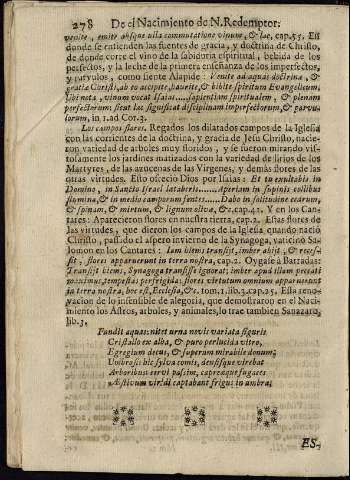 278 De el Nacimiento de N. Redemptor.
venite, emite absque ulla commutatione vinum, & lac, cap. 55. En
donde se entienden las fuentes de gracia, y doctrina de Christo,
de donde corre el vino de la sabidoria espiritual, bebida de los
perfectos, y la leche de la primera enseñanza de los imperfectos,
y parvulos, como siente Alapide: Venite ad aquas doctrina, &
gratia Christi, ab eo accipite, haurite, & bibite spiritum Evangelicum,
ibi nota, vinum vocat Isaias.....sapientiam spiritualem, & plenam
perfectorum: sicut lac significat disciplinam imperfectorum, & parvu-
lorum, in 1. ad Cor. 3.
Los campos flores. Regados los dilatados campos de la Iglesia
con las corrientes de la doctrina, y gracia de Jesu Christo, nacie-
ron variedad de arboles muy floridos, y se fueron mirando vis-
tosamente los jardines matizados con la variedad de lirios de los
Martyres, de las azucenas de las Virgenes, y demàs flores de las
otras virtudes. Esto ofreciò Dios por Isaias: Et tu exultabis in
Domino, in Sancto Israel lætaberis.....Aperiam in supinis collibus
flumina, & in medio camporum fontes.....Dabo in solitudine cedrum,
& spinam, & mirtum, & lignum olivæ, &c. cap. 41. Y en los Can-
tares: Aparecieron flores en nuestra tierra, cap. 2. Estas flores de
las virtudes, que dieron los campos de la Iglesia quando naciò
Christo, passado el aspero invierno de la Synagoga, vaticinò Sa-
lomon en los Cantares: Iam hiems transijt, imber abijt, & reces-
sit, flores apparuerunt in terra nostra, cap. 2. Oygase à Barradas:
Transijt hiems, Synagoga transisse ignorat; imber apud illum pereat
maximus, tempestas perfrigida: flores virtutum omnium apparuerunt
in terra nostra, hoc est, Ecclesia, &c. tom. 1. lib. 3. cap. 25. Esta reno-
vacion de lo insensible de alegoria, que demostraron en el Naci-
miento los Astros, arboles, y animales, lo trae tambien Sanazaro,
lib. 3.
Fundit aquas: nitet urna novis variata figuris
Cristallo ex alba, & puro perlucida vitro,
Egregium decus, & superum mirabile donum;
Umbrosa hic sylva comis, densisque virebat
Arboribus cervi passim, capreaque fugaces
Æstivum viridi captabant frigus in umbra.
ES-